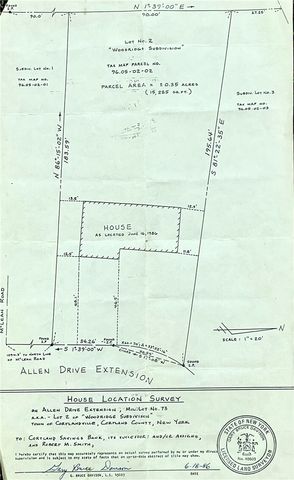 N 1°-39'-00" E
90.00'
90.0
27.25'
LOT NO. 2
"WOODRIDGE SUBDIVISION"
TAX MAP PARCEL NO.
96.05-02-02
PARCEL AREA = ± 0.35 ACRES
(15,265 SQ. FT.)
SUBDIV. LOT NO. 1
TAX MAP NO.
96.05-02-01
SUBDIV. LOT NO. 3
TAX MAP NO.
96.05-02-03
N 86°-15'-02" W
183.59'
195.64'
S 81°-22'-35" E
13.5'
12.4'
HOUSE
AS LOCATED JUNE 16, 1986
11.8'
McLEAN ROAD
54.26'
S 1°-39'-00" W
ALLEN DRIVE EXTENSION
N
SCALE: 1" = 20'
HOUSE LOCATION SURVEY
ON ALLEN DRIVE EXTENSION, MIL. LOT NO. 73
A.K.A. - LOT 2 OF "WOODRIDGE SUBDIVISION"
TOWN OF CORTLANDVILLE, CORTLAND COUNTY, NEW YORK
TO: CORTLAND SAVINGS BANK, ITS SUCCESSOR AND/OR ASSIGNS,
AND ROBERT M. SMITH,
I hereby certify that this map accurately represents an actual survey performed by me or under my direct
Gary Bruce Denison
6-18-86
DATE
STATE OF NEW YORK
LICENSED LAND SURVEYOR